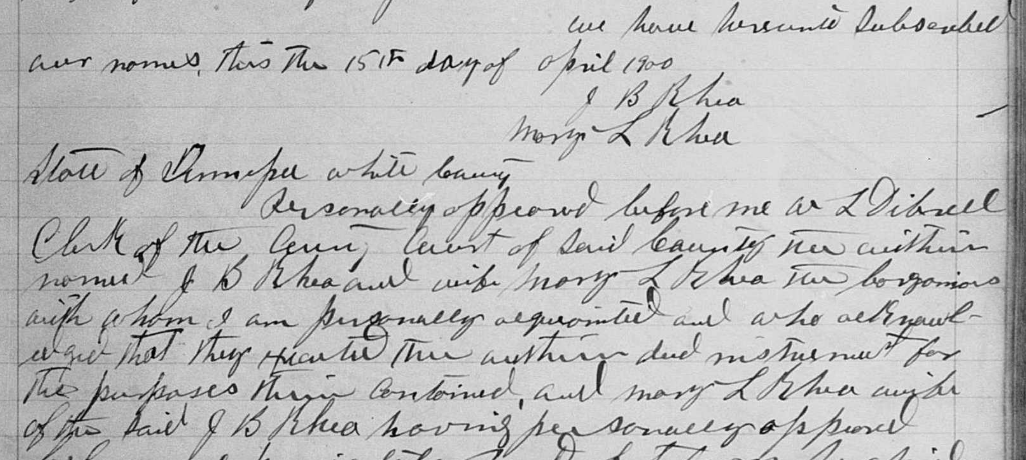 we have hereunto Subscribed
our names, this the 15th day of April 1900
J B Rhea
Mary L Rhea
State of Tennessee White County
Personally appeared before me W L Dibrell
Clerk of the County Court of Said County the within
named J B Rhea and wife Mary L Rhea the bargainors
with whom I am personally acquainted and who acknowl-
edged that they executed the within deed instrument for
the purposes therein contained, and Mary L Rhea wife
of the Said J B Rhea having personally appeared